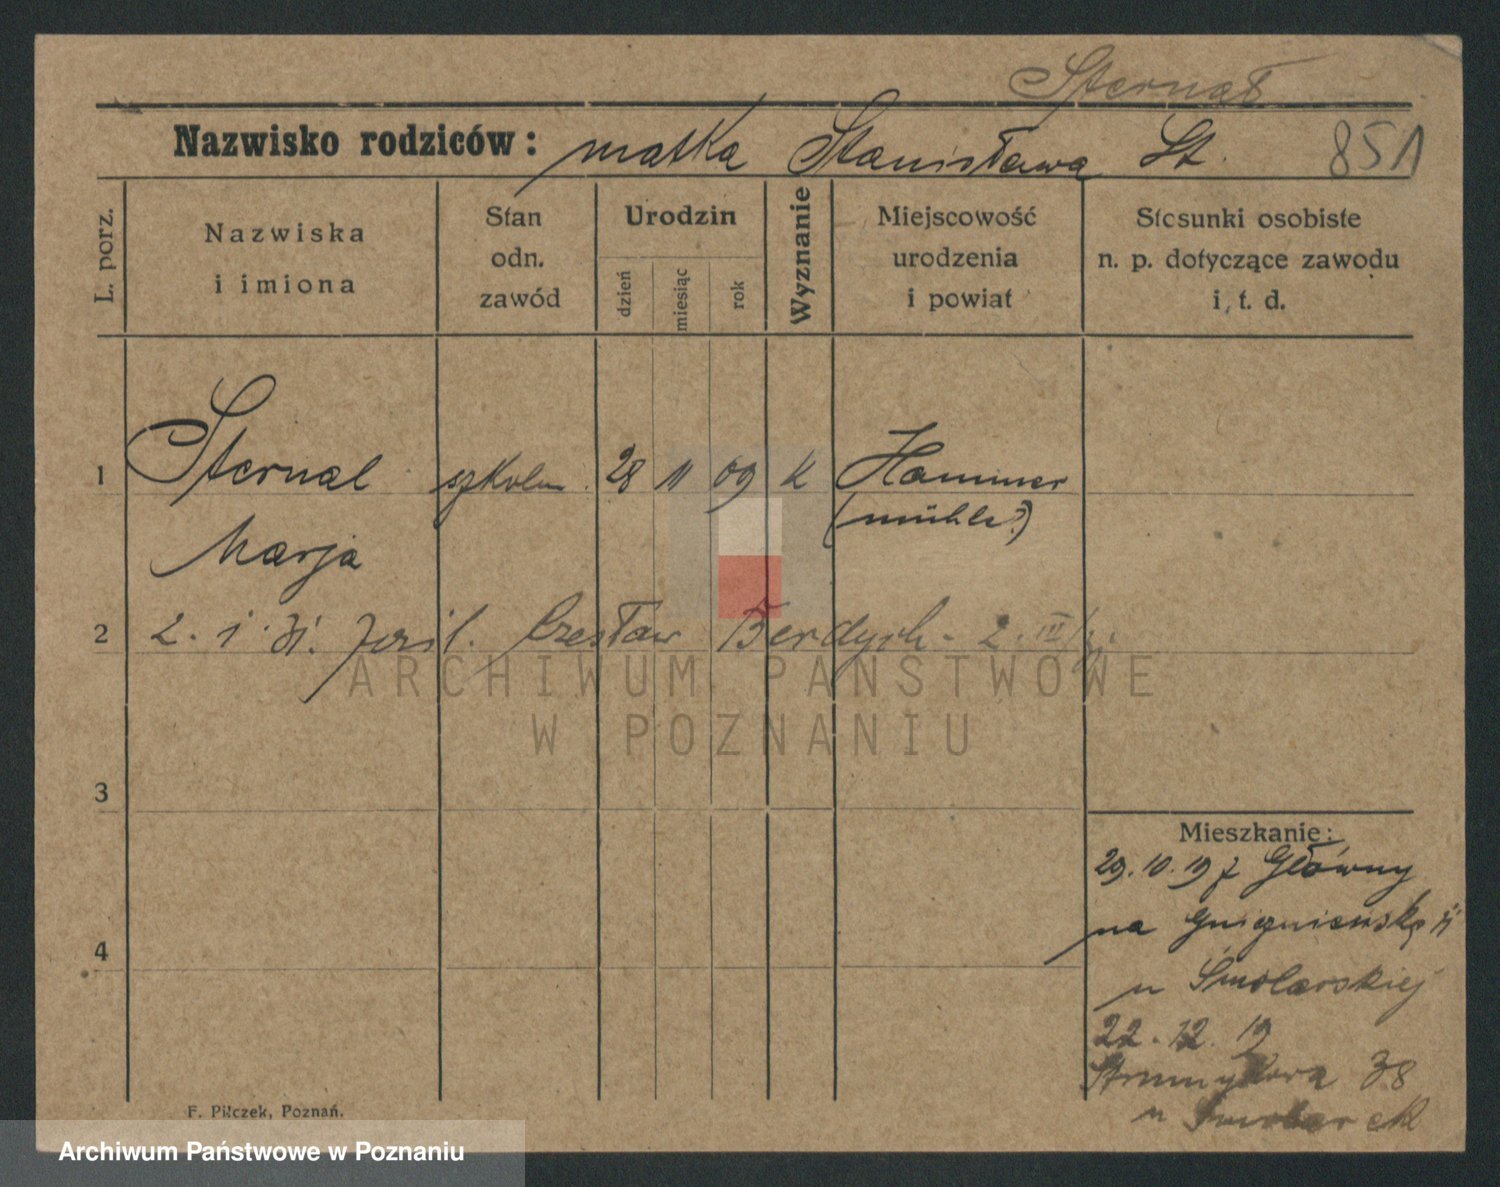 Sternał
Nazwisko rodziców: matka Stanisława St. 851
L. porz.
Nazwiska
i imiona
Stan
odn.
zawód
Urodzin
dzień
miesiąc
rok
Wyznanie
Miejscowość
urodzenia
i powiat
Stosunki osobiste
n. p. dotyczące zawodu
i, t. d.
1 Sternal szkoln. 28 11 09 k Hammer
(mühle?)
Marja
2 2. 1. 31. Czesław Berdych - 2. IV/31.
ARCHIWUM PAŃSTWOWE
W POZNANIU
3
Mieszkanie:
29. 10. 19 z Główny
na Gnieźnieńską
4
u Smolarskiej
22. 12. 19
Strumykowa 38
u
F. Pilczek, Poznań.
Archiwum Państwowe w Poznaniu